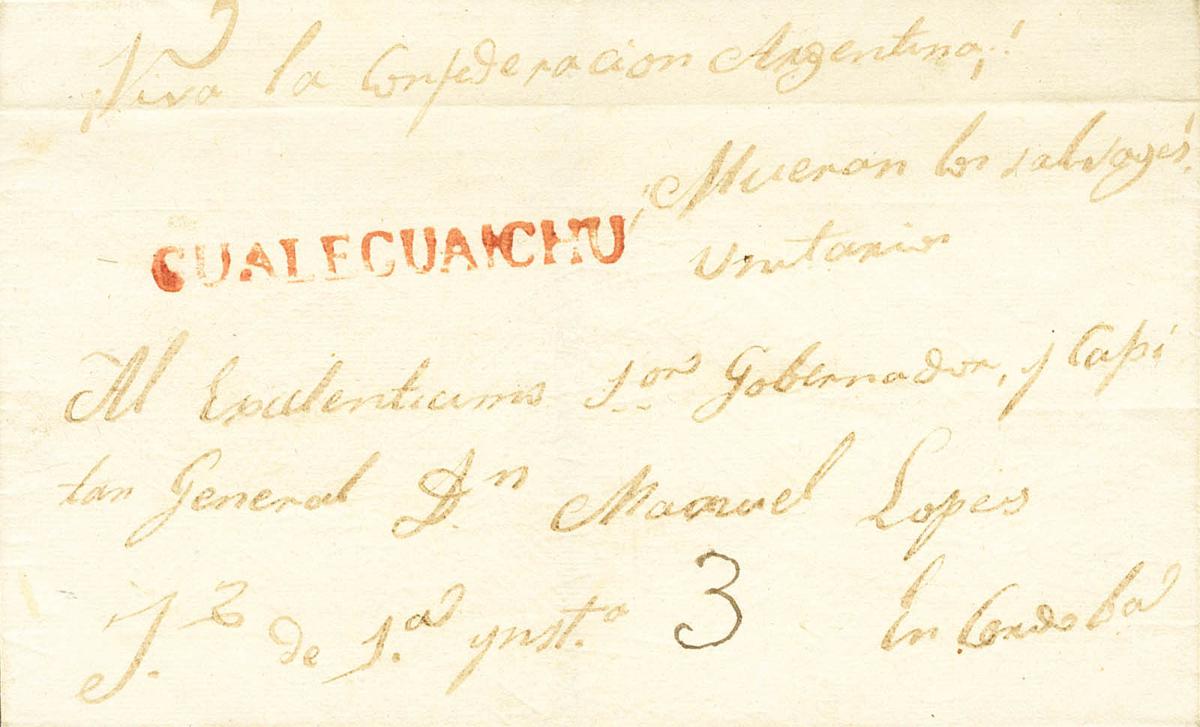 ¡Viva la Confederacion Argentina!
¡Mueran los salvages
GUALEGUAICHU
Unitarios
Al Excelenticimo Sor Gobernador, y Capi
tan General Dn Manuel Lopes
J.z de 1.a ynst.a 3 En Cordoba